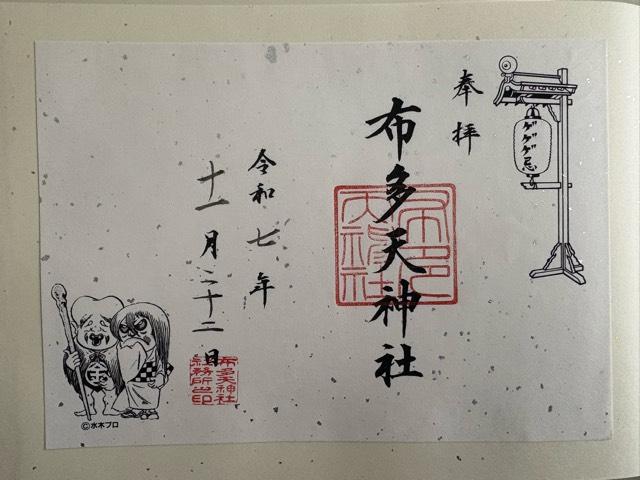 奉拝
ゲゲゲ忌
布多天神社
令和七年
十一月二十二日
布多天神社
総務所之印
金
©水木プロ